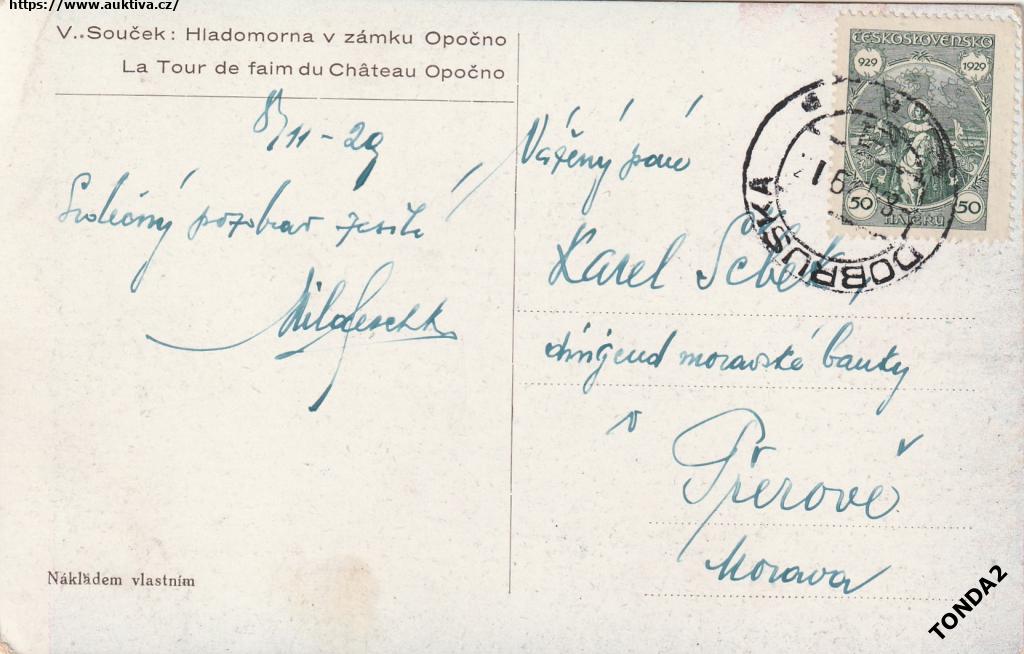 https://www.auktiva.cz/
V. Souček: Hladomorna v zámku Opočno
La Tour de faim du Château Opočno
8/11 - 29
Srdečný pozdrav zasílá
Vážený pan
Karel Šebek,
dirigend moravské banky
v
Přerově
Morava
ČESKOSLOVENSKO
929 1929
50 HALÉŘŮ 50
DOBRUŠKA
Nákladem vlastním
TONDA2